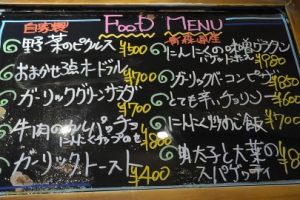 FOOD MENU
自家製
野菜のピクルス ¥500
おまかせ3点オードブル ¥700
ガーリックグリーンサラダ ¥700
牛肉のカルパッチョ
にんにくチップのせ ¥800
ガーリックトースト ¥400
青森県産
にんにくの味噌グラタン
¥780
ガーリックベーコンピザ ¥850
とても辛いチョリソー ¥600
にんにく炒めご飯 ¥700
明太子と大葉の
スパゲッティ